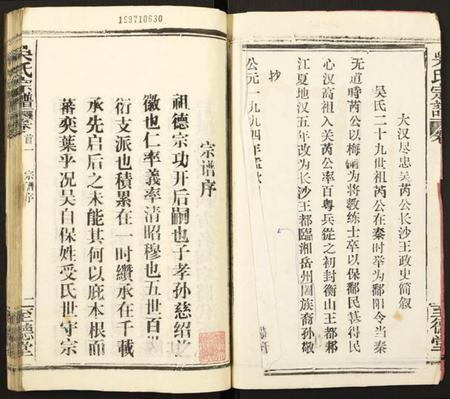 大汉尽忠吴芮公长沙王政史简叙
吴氏二十九世祖芮公在秦时举为鄱阳令当秦
无道時芮公以梅鋗为将教练士卒以保鄱民甚得民
心汉高祖入关芮公率百粤兵從之初封衡山王都邾
江夏地汉五年改为长沙王都臨湘岳州阖族裔孙敬
抄
公元一九九四年孟秋
吴氏宗譜
卷
至德堂
169710630
宗谱序
祖德宗功开后嗣也子孝孙慈绍
徽也仁率義率清昭穆也五世百世
衍支派也積累在一时纘承在千載
承先启后之未能其何以庇本根而
蕃奕葉乎况吴自保姓受氏世守宗
吴氏宗譜
卷首一
宗譜序
一
至德堂